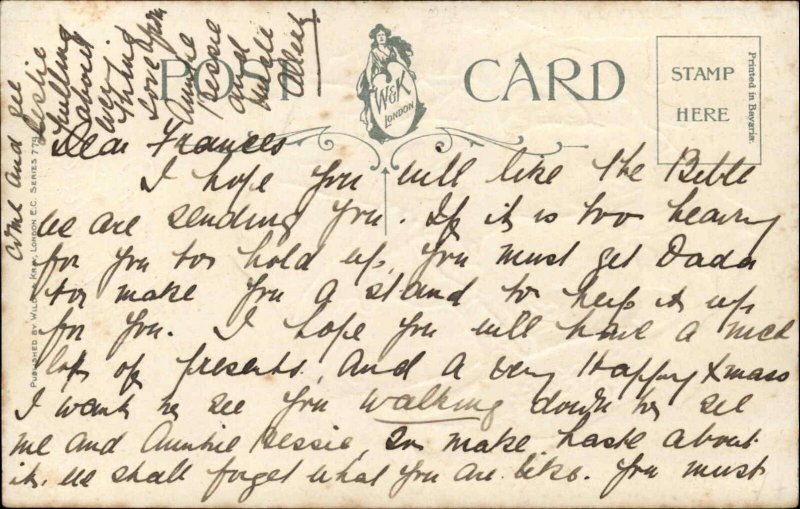 POST CARD
W&K
LONDON
STAMP
HERE
Printed in Bavaria.
PUBLISHED BY WILDT & KRAY, LONDON E.C. SERIES
Dear Frances
I hope you will like the Bible
we are sending you. If it is too heavy
for you to hold up, you must get Dada
to make you a stand to keep it up
for you. I hope you will have a nice
lot of presents, and a very Happy Xmas
I want to see you walking down to see
me and Auntie Bessie, so make haste about
it. We shall forget what you are like. You must
come and see
Leslie
pulling
about
thing
love from
Auntie
Bessie
and